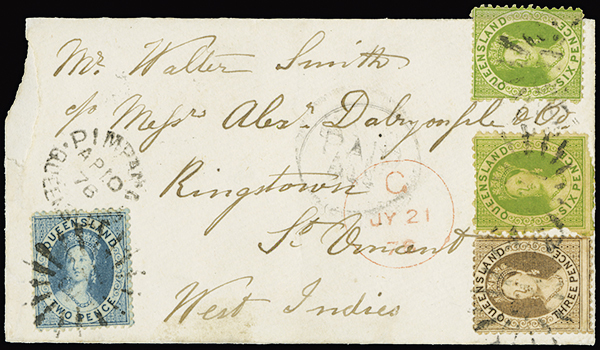 Mr. Walter Smith
c/o Messrs Alexr. Dalrymple & Co
Kingstown
St Vincent
West Indies
PIMPAMA
AP 10
76
QUEENSLAND
TWO PENCE
QUEENSLAND
SIX PENCE
QUEENSLAND
SIX PENCE
QUEENSLAND
THREE PENCE
PAN
C
JY 21